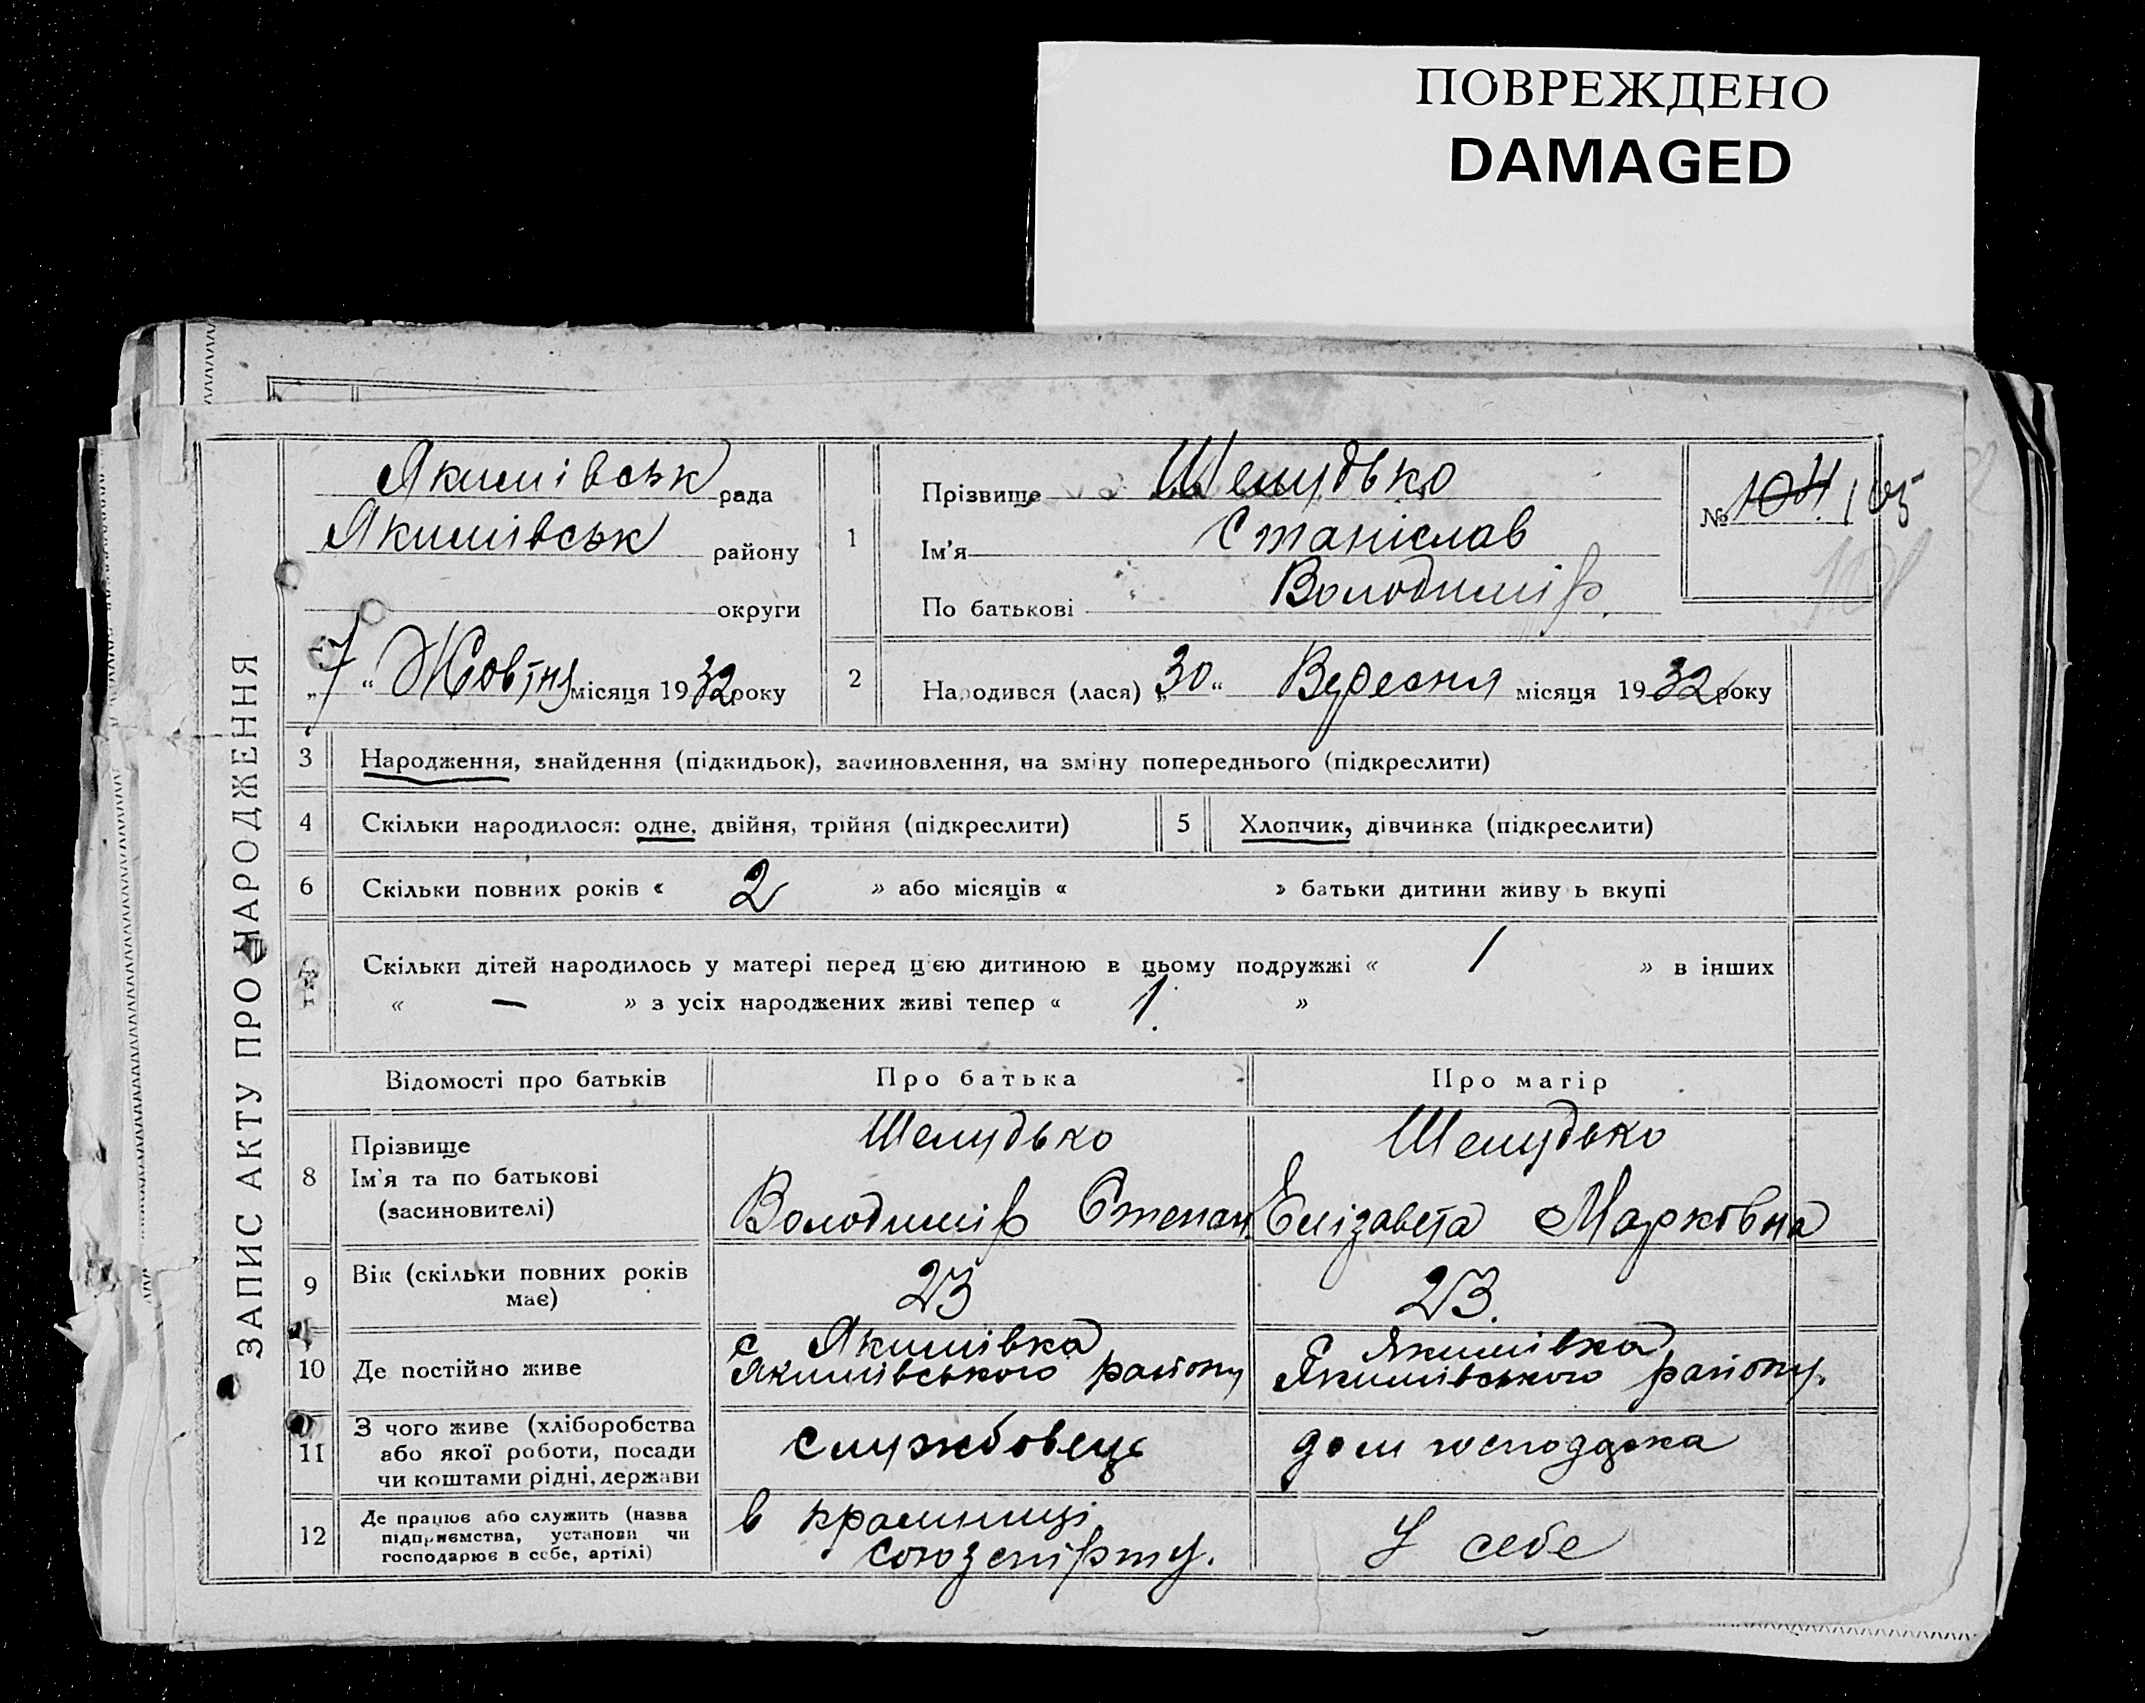 ПОВРЕЖДЕНО
DAMAGED
ЗАПИС АКТУ ПРО НАРОДЖЕННЯ
Якимівськ рада
Якимівськ району
округи
„7“ Жовтня місяця 1932 року
1
Прізвище Шелудько
Ім'я Станіслав
По батькові Володимір.
№ 104 105
2
Народився (лася) „30“ Вересня місяця 1932 року
3 Народження, знайдення (підкидьок), засиновлення, на зміну попереднього (підкреслити)
4 Скільки народилося: одне, двійня, трійня (підкреслити)
5 Хлопчик, дівчинка (підкреслити)
6 Скільки повних років « 2 » або місяців « » батьки дитини живу ь вкупі
Скільки дітей народилось у матері перед цією дитиною в цьому подружжі « 1 » в інших
« — » з усіх народжених живі тепер « 1. »
Відомості про батьків Про батька Про матір
8 Прізвище
Ім'я та по батькові
(засиновителі)
Шелудько
Володимір Степан.
Шелудько
Єлізавета Марковна
9 Вік (скільки повних років
має)
23
23.
10 Де постійно живе
с Якимівка
Якимівського району
с Якимівка
Якимівського району.
11 З чого живе (хліборобства
або якої роботи, посади
чи коштами рідні, держави
службовець
дом господарка
12 Де працює або служить (назва
підприємства, установи чи
господарює в себе, артілі)
в крамниці
союзспірту.
У себе